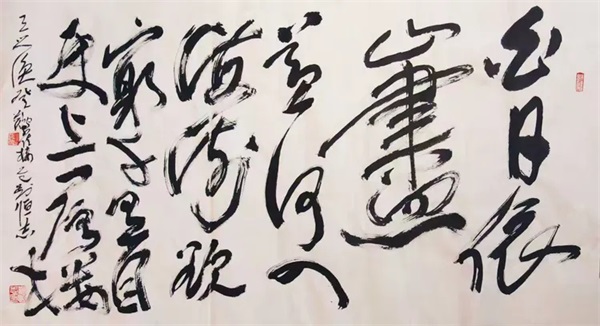 白日依
山盡
黄河入
海流欲
窮千里目
更上一層樓
王之涣登鹳雀楼